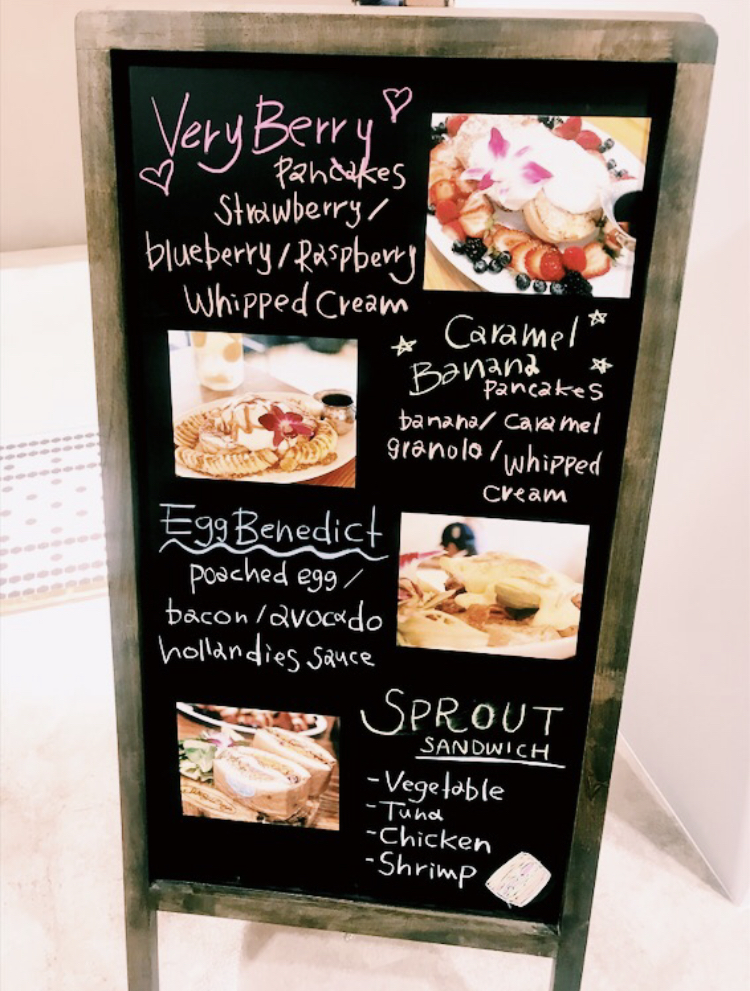 Very Berry
Pancakes
Strawberry/
blueberry/Raspberry
Whipped Cream
Caramel
Banana
pancakes
banana/ caramel
granolo/whipped
cream
Egg Benedict
poached egg/
bacon/avocado
hollandies sauce
SPROUT
SANDWICH
-Vegetable
-Tuna
-Chicken
-Shrimp